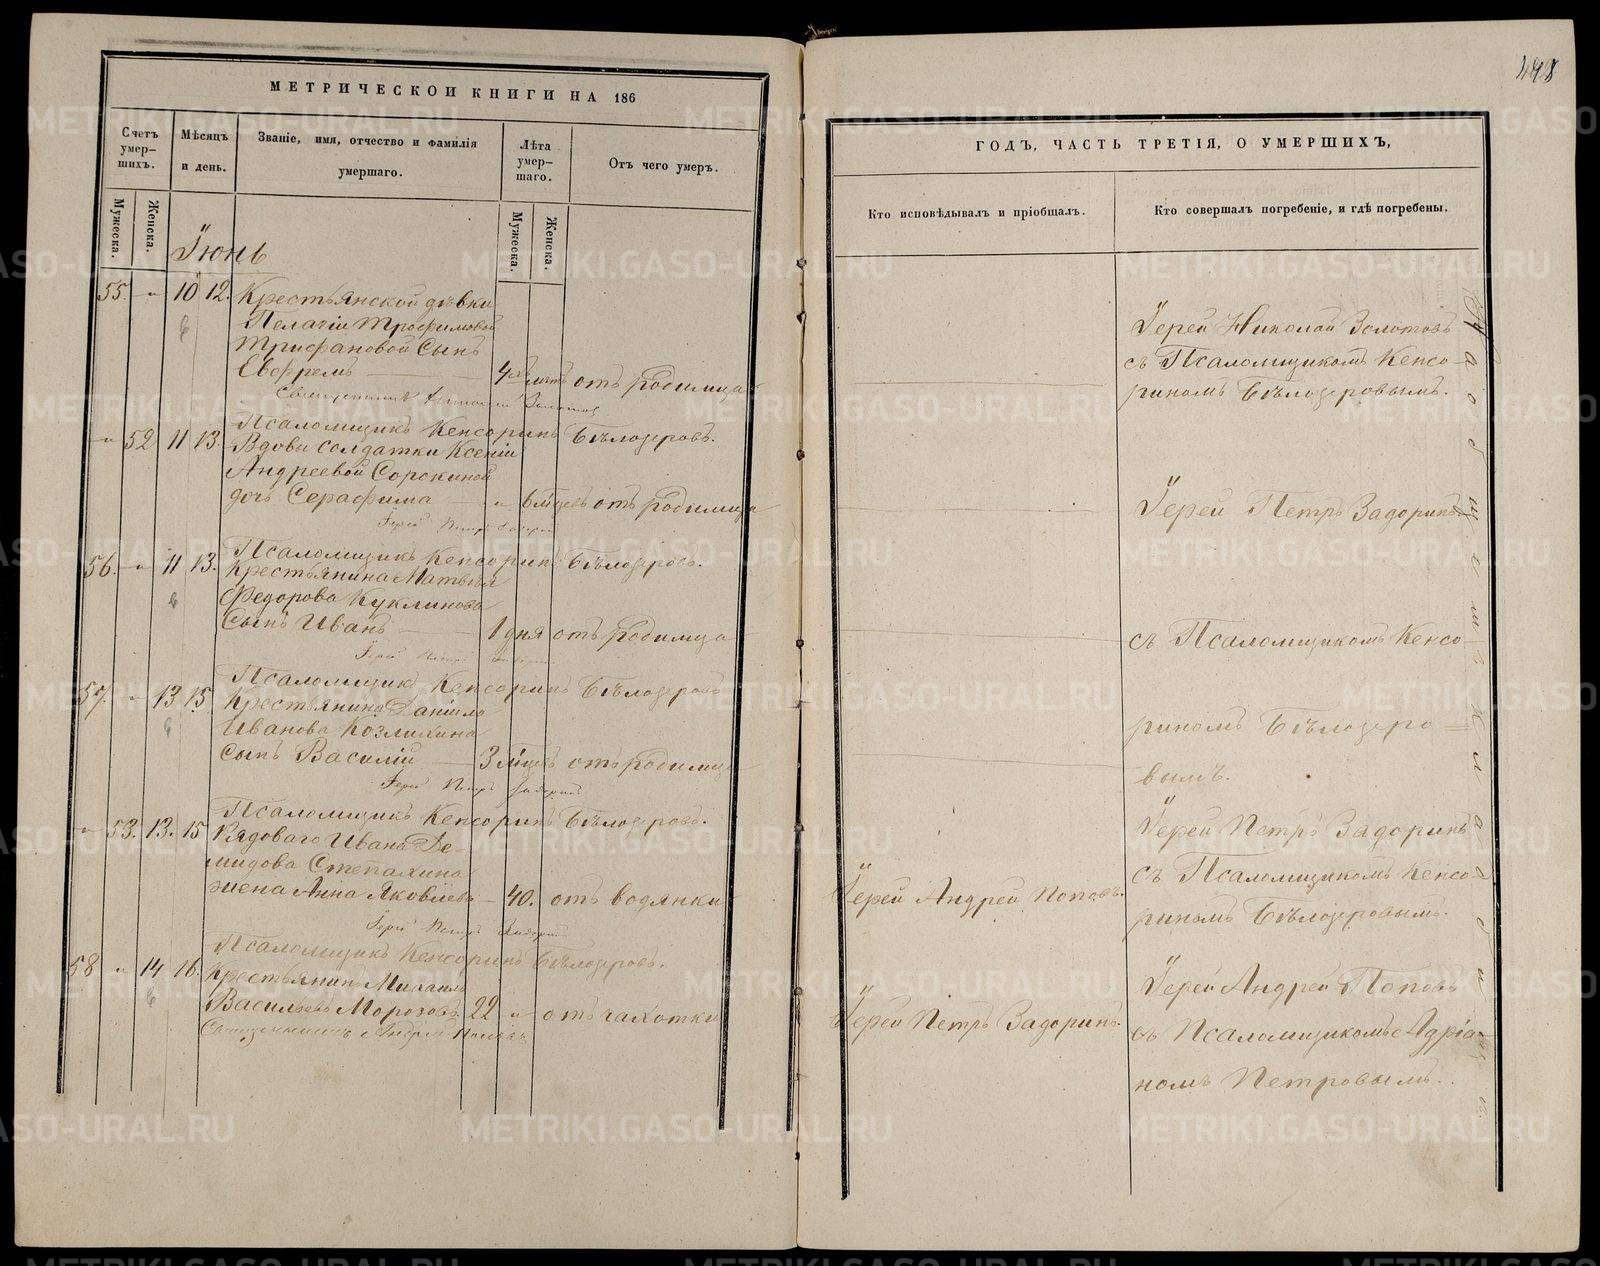 МЕТРИЧЕСКОЙ КНИГИ НА 186
Счетъ умер-
шихъ.
Мѣсяцъ
и день.
Званіе, имя, отчество и фамилія
умершаго.
Лѣта
умер-
шаго.
Отъ чего умеръ.
Мужеска.
Женска.
Мужеска.
Женска.
Іюнь
55. " 10 12. Крестьянской дѣвки
Пелагіи Трофимовой
Трифановой Сынъ
Евфремъ 4 лѣтъ отъ родимца
Священникъ Николай Золотовъ
Псаломщикъ Кенсоринъ Бѣлозеровъ.
" 52 11 13. Вдовы солдатки Ксеніи
Андреевой Сорокиной
дочь Серафима " 6 мѣцевъ отъ родимца
Іерей Петръ Задоринъ
Псаломщикъ Кенсоринъ Бѣлозеровъ.
56. " 11 13. Крестьянина Матвѣя
Федорова Куклинова
Сынъ Иванъ 1 дня отъ родимца
Іерей Петръ Задоринъ
Псаломщикъ Кенсоринъ Бѣлозеровъ
57. " 13 15 Крестьянина Даніила
Иванова Козлихина
сынъ Василій 3 мѣцевъ отъ родимца
Іерей Петръ Задоринъ
Псаломщикъ Кенсоринъ Бѣлозеровъ.
" 53. 13. 15 Рядоваго Ивана Де-
мидова Степахина
жена Анна Яковлева 40. отъ водянки
Іерей Петръ Задоринъ
Псаломщикъ Кенсоринъ Бѣлозеровъ.
58 " 14 16. Крестьянинъ Михаилъ
Васильевъ Морозовъ 22 " отъ чахотки
Священникъ Андрей Поповъ
448
ГОДЪ, ЧАСТЬ ТРЕТІЯ, О УМЕРШИХЪ,
Кто исповѣдывалъ и пріобщалъ.
Кто совершалъ погребеніе, и гдѣ погребены.
Іерей Николай Золотовъ
съ Псаломщикомъ Кенсо-
риномъ Бѣлозеровымъ.
Іерей Петръ Задоринъ
съ Псаломщикомъ Кенсо
риномъ Бѣлозеро=
вымъ.
Іерей Андрей Поповъ.
Іерей Петръ Задоринъ
съ Псаломщикомъ Кенсо-
риномъ Бѣлозеровымъ.
Іерей Петръ Задоринъ.
Іерей Андрей Поповъ
съ Псаломщикомъ Адріа-
номъ Петровымъ.
METRIKI.GASO-URAL.RU